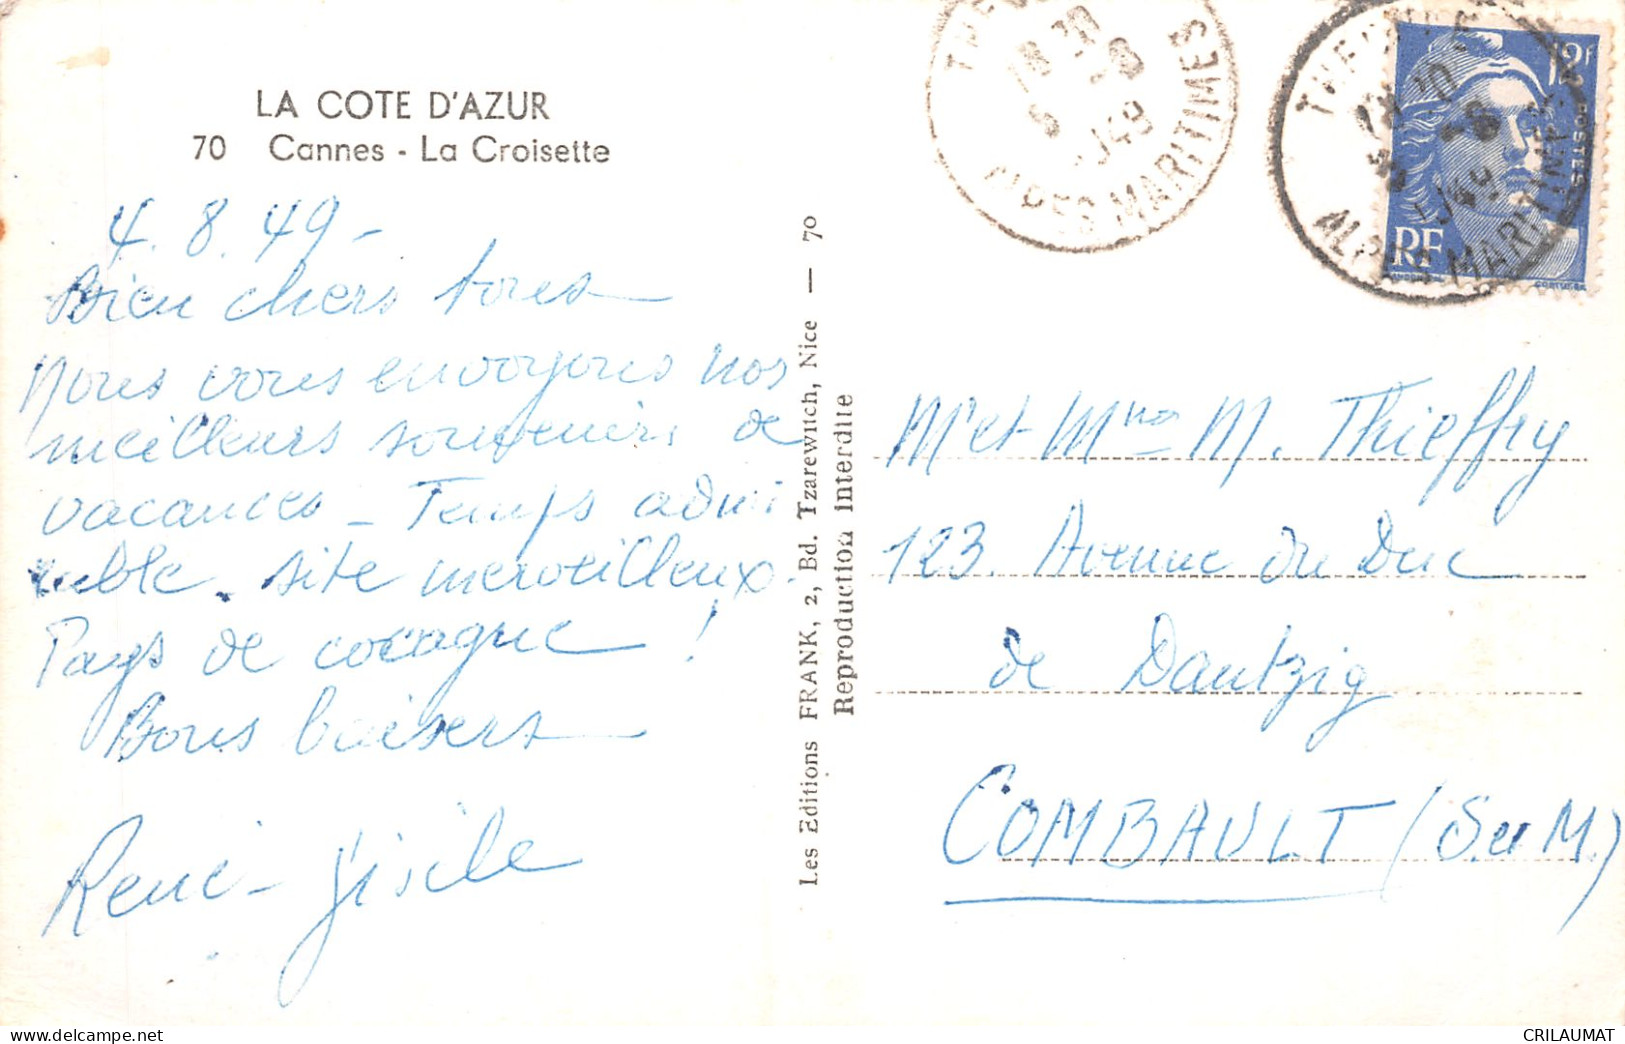 LA COTE D'AZUR
70 Cannes - La Croisette
4.8.49 -
Bien chers tous
Nous vous envoyons nos
meilleurs souvenirs de
vacances - Temps admi
rable. site merveilleux.
Pays de cocagne !
Bons baisers
René - Gisèle
Les Editions FRANK, 2, Bd. Tzarewitch, Nice — 70
Reproduction Interdite
ALPES MARITIMES
ALPES MARITIMES
12F
POSTES
RF
Mr et Mme M. Thieffry
123. Avenue du Duc
de Dantzig
COMBAULT (S. et M.)
CRILAUMAT